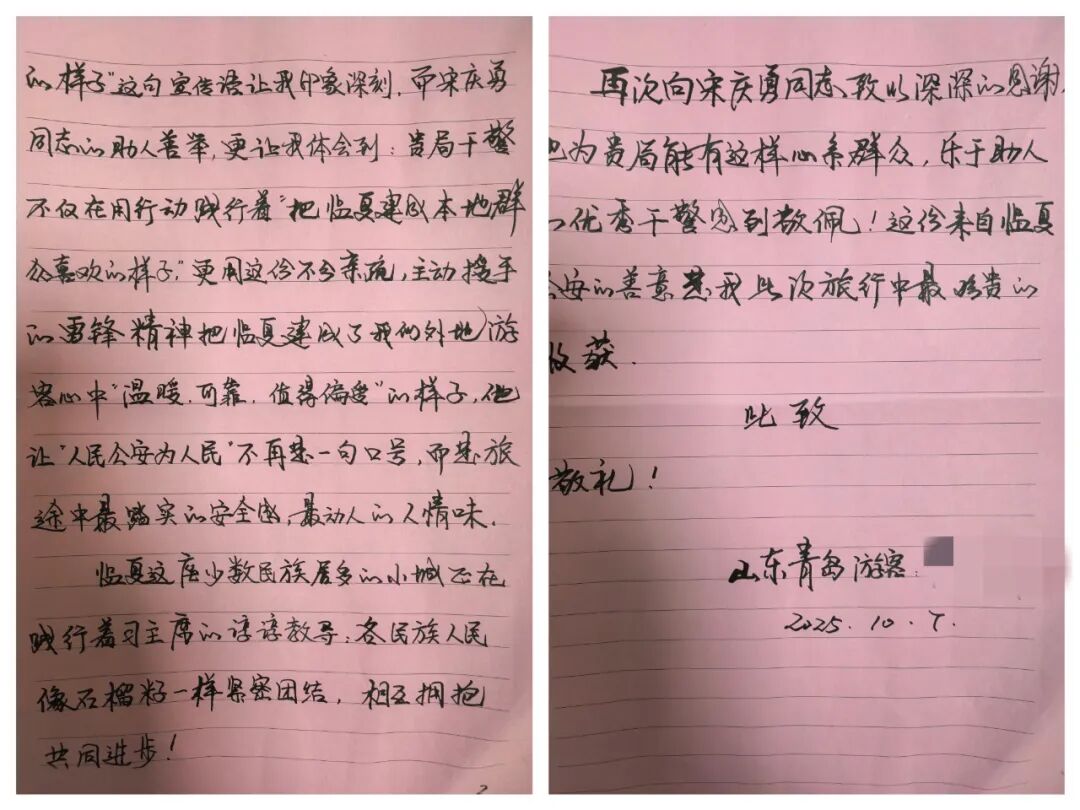 的样子”这句宣传语让我印象深刻，而宋庆勇
同志的助人善举，更让我体会到：贵局干警
不仅在用行动践行着“把临夏建成本地群
众喜欢的样子”，更用这份不分亲疏，主动援手
的雷锋精神把临夏建成了我们外地游
客心中“温暖，可靠，值得偏爱”的样子，他
让“人民公安为人民”不再是一句口号，而是旅
途中最踏实的安全感，最动人的人情味。
临夏这座少数民族居多的小城正在
践行着习主席的谆谆教导：各民族人民
像石榴籽一样紧密团结，相互拥抱
共同进步！
2
再次向宋庆勇同志致以深深的感谢，
也为贵局能有这样心系群众，乐于助人
的优秀干警感到敬佩！这份来自临夏
公安的善意是我此次旅行中最珍贵的
收获。
此致
敬礼！
山东青岛游客：
2025.10.7.